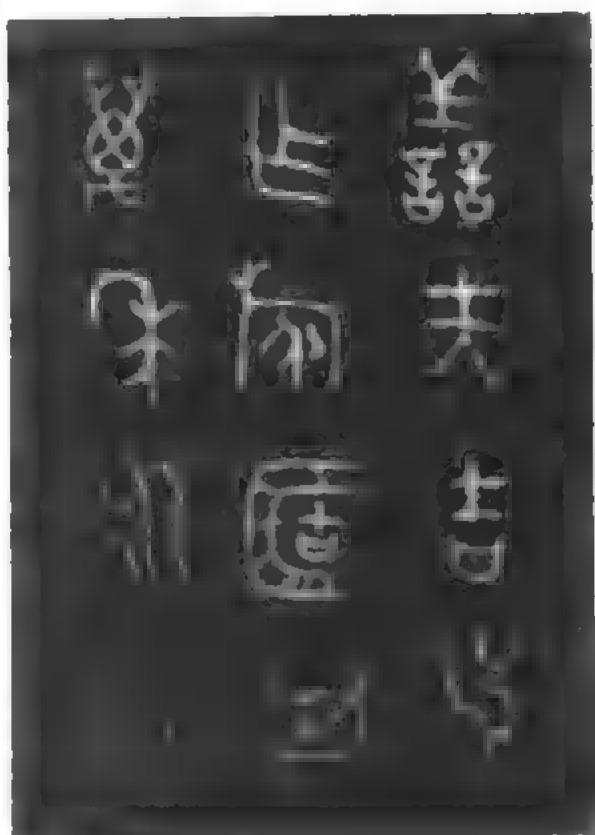 善夫吉父
乍旅簠其
萬年永